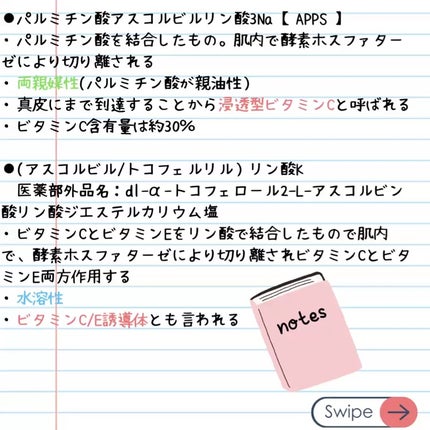 ●パルミチン酸アスコルビルリン酸3Na【 APPS 】
・パルミチン酸を結合したもの。肌内で酵素ホスファター
ゼにより切り離される
・両親媒性(パルミチン酸が親油性)
・真皮にまで到達することから浸透型ビタミンCと呼ばれる
・ビタミンC含有量は約30%
●(アスコルビル/トコフェルリル) リン酸K
医薬部外品名：dl-α-トコフェロール2-L-アスコルビン
酸リン酸ジエステルカリウム塩
・ビタミンCとビタミンEをリン酸で結合したもので肌内
で、酵素ホスファターゼにより切り離されビタミンCとビタ
ミンE両方作用する
・水溶性
・ビタミンC/E誘導体とも言われる
notes
Swipe